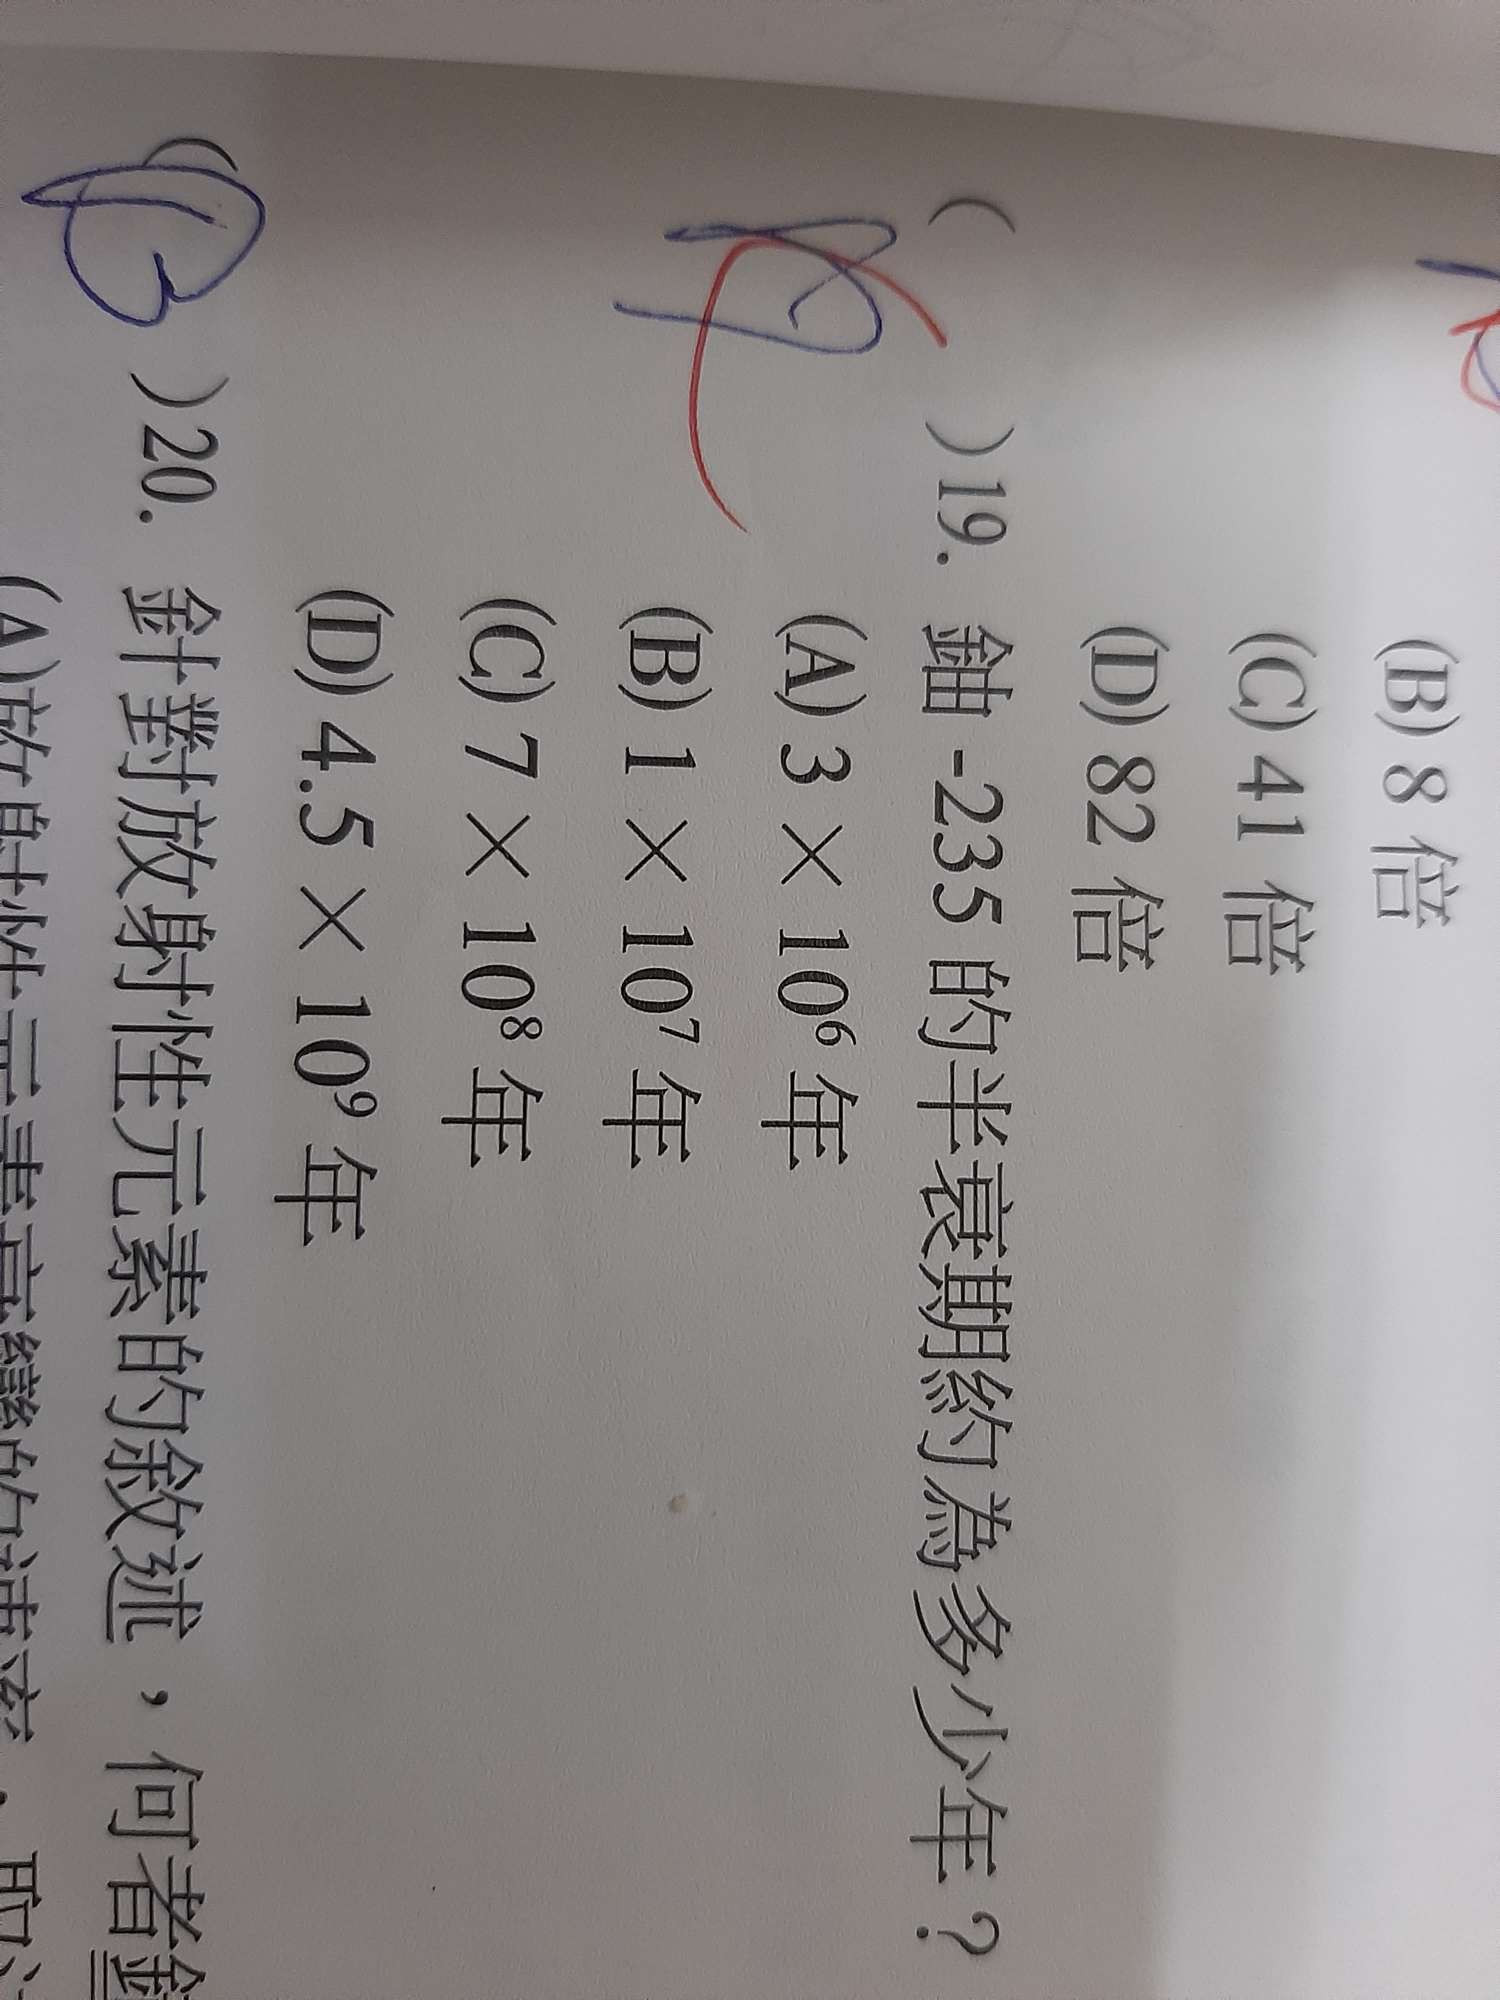 (B) 8 倍
(C) 41 倍
(D) 82 倍
( )19. 鈾 -235 的半衰期約為多少年？
(A) 3 × 10⁶ 年
(B) 1 × 10⁷ 年
(C) 7 × 10⁸ 年
(D) 4.5 × 10⁹ 年
(B)20. 針對放射性元素的敘述，何者
(A)放射性元素衰變的速率，